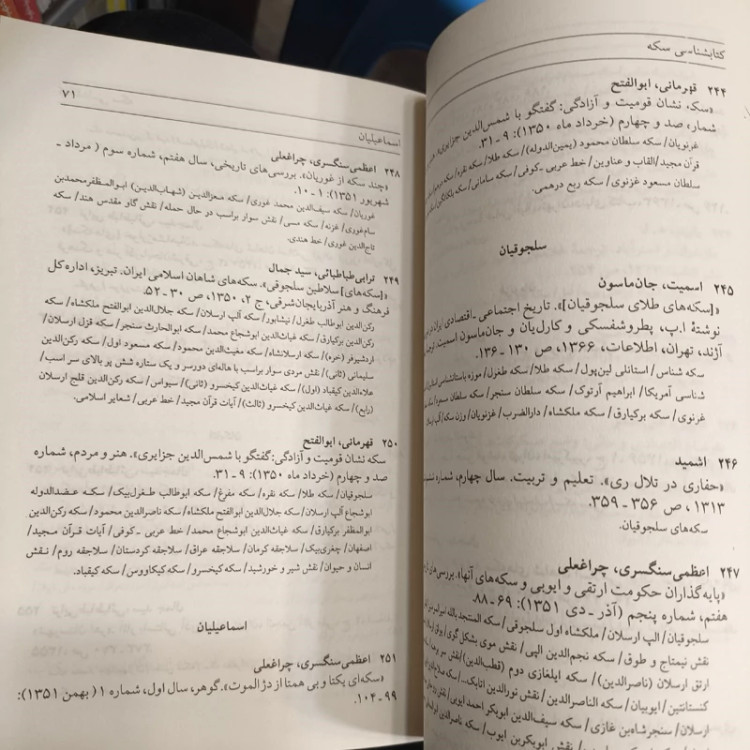 کتابشناسی سکه
۲۴۴ قهرمانی، ابوالفتح
«سکه نشان قومیت و آزادگی: گفتگو با شمس‌الدین جزایری».
شماره صد و چهارم (خرداد ماه ۱۳۵۰): ۹ ـ ۳۱.
غزنویان/ سکه سلطان محمود (یمین‌الدوله)/ سکه طلا/ سکه نقره/
قرآن مجید/ القاب و عناوین/ خط عربی ـ کوفی/ سکه سامانی/
سلطان مسعود غزنوی/ سکه ربع درهمی.
سلجوقیان
۲۴۵ اسمیت، جان‌ماسون
«[سکه‌های طلای سلجوقیان]». تاریخ اجتماعی ـ اقتصادی ایران
نوشتهٔ ا.پ. پطروشفسکی و کارل‌یان و جان‌ماسون اسمیت.
آژند، تهران، اطلاعات، ۱۳۶۶، ص ۱۳۰ ـ ۱۳۶.
سکه شناس/ استانلی لین‌پول/ سکه طلا/ سکه طغرل/ موزه باستانشناسی
شناسی آمریکا/ ابراهیم آرتوک/ سکه سلطان سنجر/ سکه سلطان مسعود/
غزنوی/ سکه برکیارق/ سکه ملکشاه/ دارالضرب/ غزنویان/ وزن سکه/
۲۴۶ اشمید
«حفاری در تلال ری». تعلیم و تربیت. سال چهارم، شماره
۱۳۱۳، ص ۳۵۶ ـ ۳۵۹.
سکه‌های سلجوقیان.
۲۴۷ اعظمی‌سنگسری، چراغعلی
«پایه‌گذاران حکومت ارتقی و ایوبی و سکه‌های آنها». بررسی‌های
هفتم، شماره پنجم (آذر ـ دی ۱۳۵۱): ۶۹ ـ ۸۸.
سلجوقیان/ الپ ارسلان/ ملکشاه اول سلجوقی/ سکه المنتجد بالله
نقش نیمتاج و طوق/ سکه نجم‌الدین الپی/ نقش موی بشکل گوی/
ارتق ارسلان (ناصرالدین)/ سکه ایلغازی دوم (قطب‌الدین)/
کنستانتین/ ایوبیان/ سکه الناصرالدین/ نقش نورالدین اتابک/
ارسلان/ سنجرشاه‌بن غازی/ سکه سیف‌الدین ابوبکر احمد ایوبی/
نقش ابوبکربن ایوب/ سکه ناصرالدین
اسماعیلیان
۷۱
۲۴۸ اعظمی‌سنگسری، چراغعلی
«چند سکه از غوریان». بررسی‌های تاریخی، سال هفتم، شماره سوم (مرداد ـ
شهریور ۱۳۵۱): ۱ ـ ۱۰.
غوریان/ سکه سیف‌الدین محمد غوری/ سکه معزالدین (شهاب‌الدین) ابوالمظفرمحمدبن
سام‌غوری/ غزنه/ سکه مسی/ نقش سوار براسب در حال حمله/ نقش گاو مقدس هند/ سکه
تاج‌الدین غوری/ خط هندی.
۲۴۹ ترابی‌طباطبائی، سید جمال
«[سکه‌های] سلاطین سلجوقی». سکه‌های شاهان اسلامی ایران. تبریز، اداره کل
فرهنگ و هنر آذربایجان‌شرقی، ج ۲، ۱۳۵۰، ص ۳۰ ـ ۵۲.
رکن‌الدین ابوطالب طغرل/ نیشابور/ سکه آلپ ارسلان/ سکه جلال‌الدین ابوالفتح ملکشاه/ سکه
رکن‌الدین برکیارق/ سکه غیاث‌الدین ابوشجاع محمد/ سکه ابوالحارث سنجر/ سکه قزل ارسلان/
اردشیرفر (خره)/ سکه ارسلانشاه/ سکه مغیث‌الدین محمود/ سکه مسعود اول/ سکه رکن‌الدین
سلیمانی (ثانی)/ نقش مردی سوار براسب با هاله‌ای دورسر و یک ستاره شش پر بالای سر اسب/
علاءالدین کیقباد (اول)/ سکه غیاث‌الدین کیخسرو (ثانی)/ سیواس/ سکه رکن‌الدین قلیج ارسلان
(رابع)/ سکه غیاث‌الدین کیخسرو (ثالث)/ آیات قرآن مجید/ خط عربی/ شعایر اسلامی.
۲۵۰ قهرمانی، ابوالفتح
سکه نشان قومیت و آزادگی: گفتگو با شمس‌الدین جزایری». هنر و مردم، شماره
صد و چهارم (خرداد ماه ۱۳۵۰): ۹ ـ ۳۱.
سلجوقیان/ سکه طلا/ سکه نقره/ سکه مفرغ/ سکه ابوطالب طغرل‌بیک/ سکه عضدالدوله
ابوشجاع آلپ ارسلان/ سکه جلال‌الدین ابوالفتح ملکشاه/ سکه ناصرالدین محمود/ سکه رکن‌الدین
ابوالمظفر برکیارق/ سکه غیاث‌الدین ابوشجاع محمد/ خط عربی ـ کوفی/ آیات قرآن مجید/
اصفهان/ جغری‌بیک/ سلاجقه کرمان/ سلاجقه عراق/ سلاجقه کردستان/ سلاجقه روم/ نقش
انسان و حیوان/ نقش شیر و خورشید/ سکه کیخسرو/ سکه کیکاووس/ سکه کیقباد.
اسماعیلیان
۲۵۱ اعظمی‌سنگسری، چراغعلی
«سکه‌ای یکتا و بی همتا از دژ الموت». گوهر، سال اول، شماره ۱ (بهمن ۱۳۵۱):
۹۹ ـ ۱۰۴.